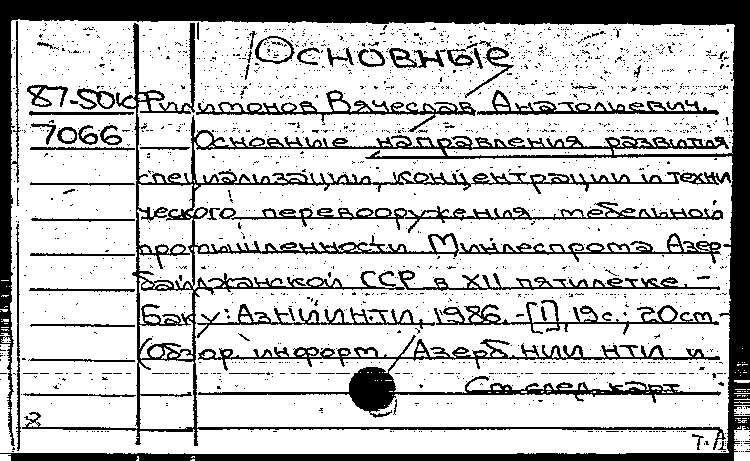 Основные
87-50к Филимонов, Вячеслав Анатольевич.
7066 Основные направления развития
специализации, концентрации и техни
ческого перевооружения мебельной
промышленности Минлеспрома Азер-
байджанской ССР в XII пятилетке. -
Баку: АзНИИНТИ, 1986. -[1], 19 с.; 20 см -
(Обзор. информ. Азерб. НИИ НТИ и
См. след. карт
8
т. Л